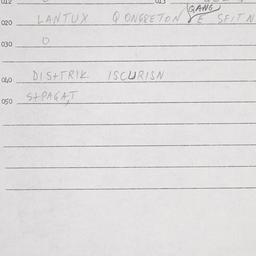 012 013
020 LANTUX QONGRETON GANG E SFITN
030 O
040 DISTRIK ISCURISN
050 STPAGAT